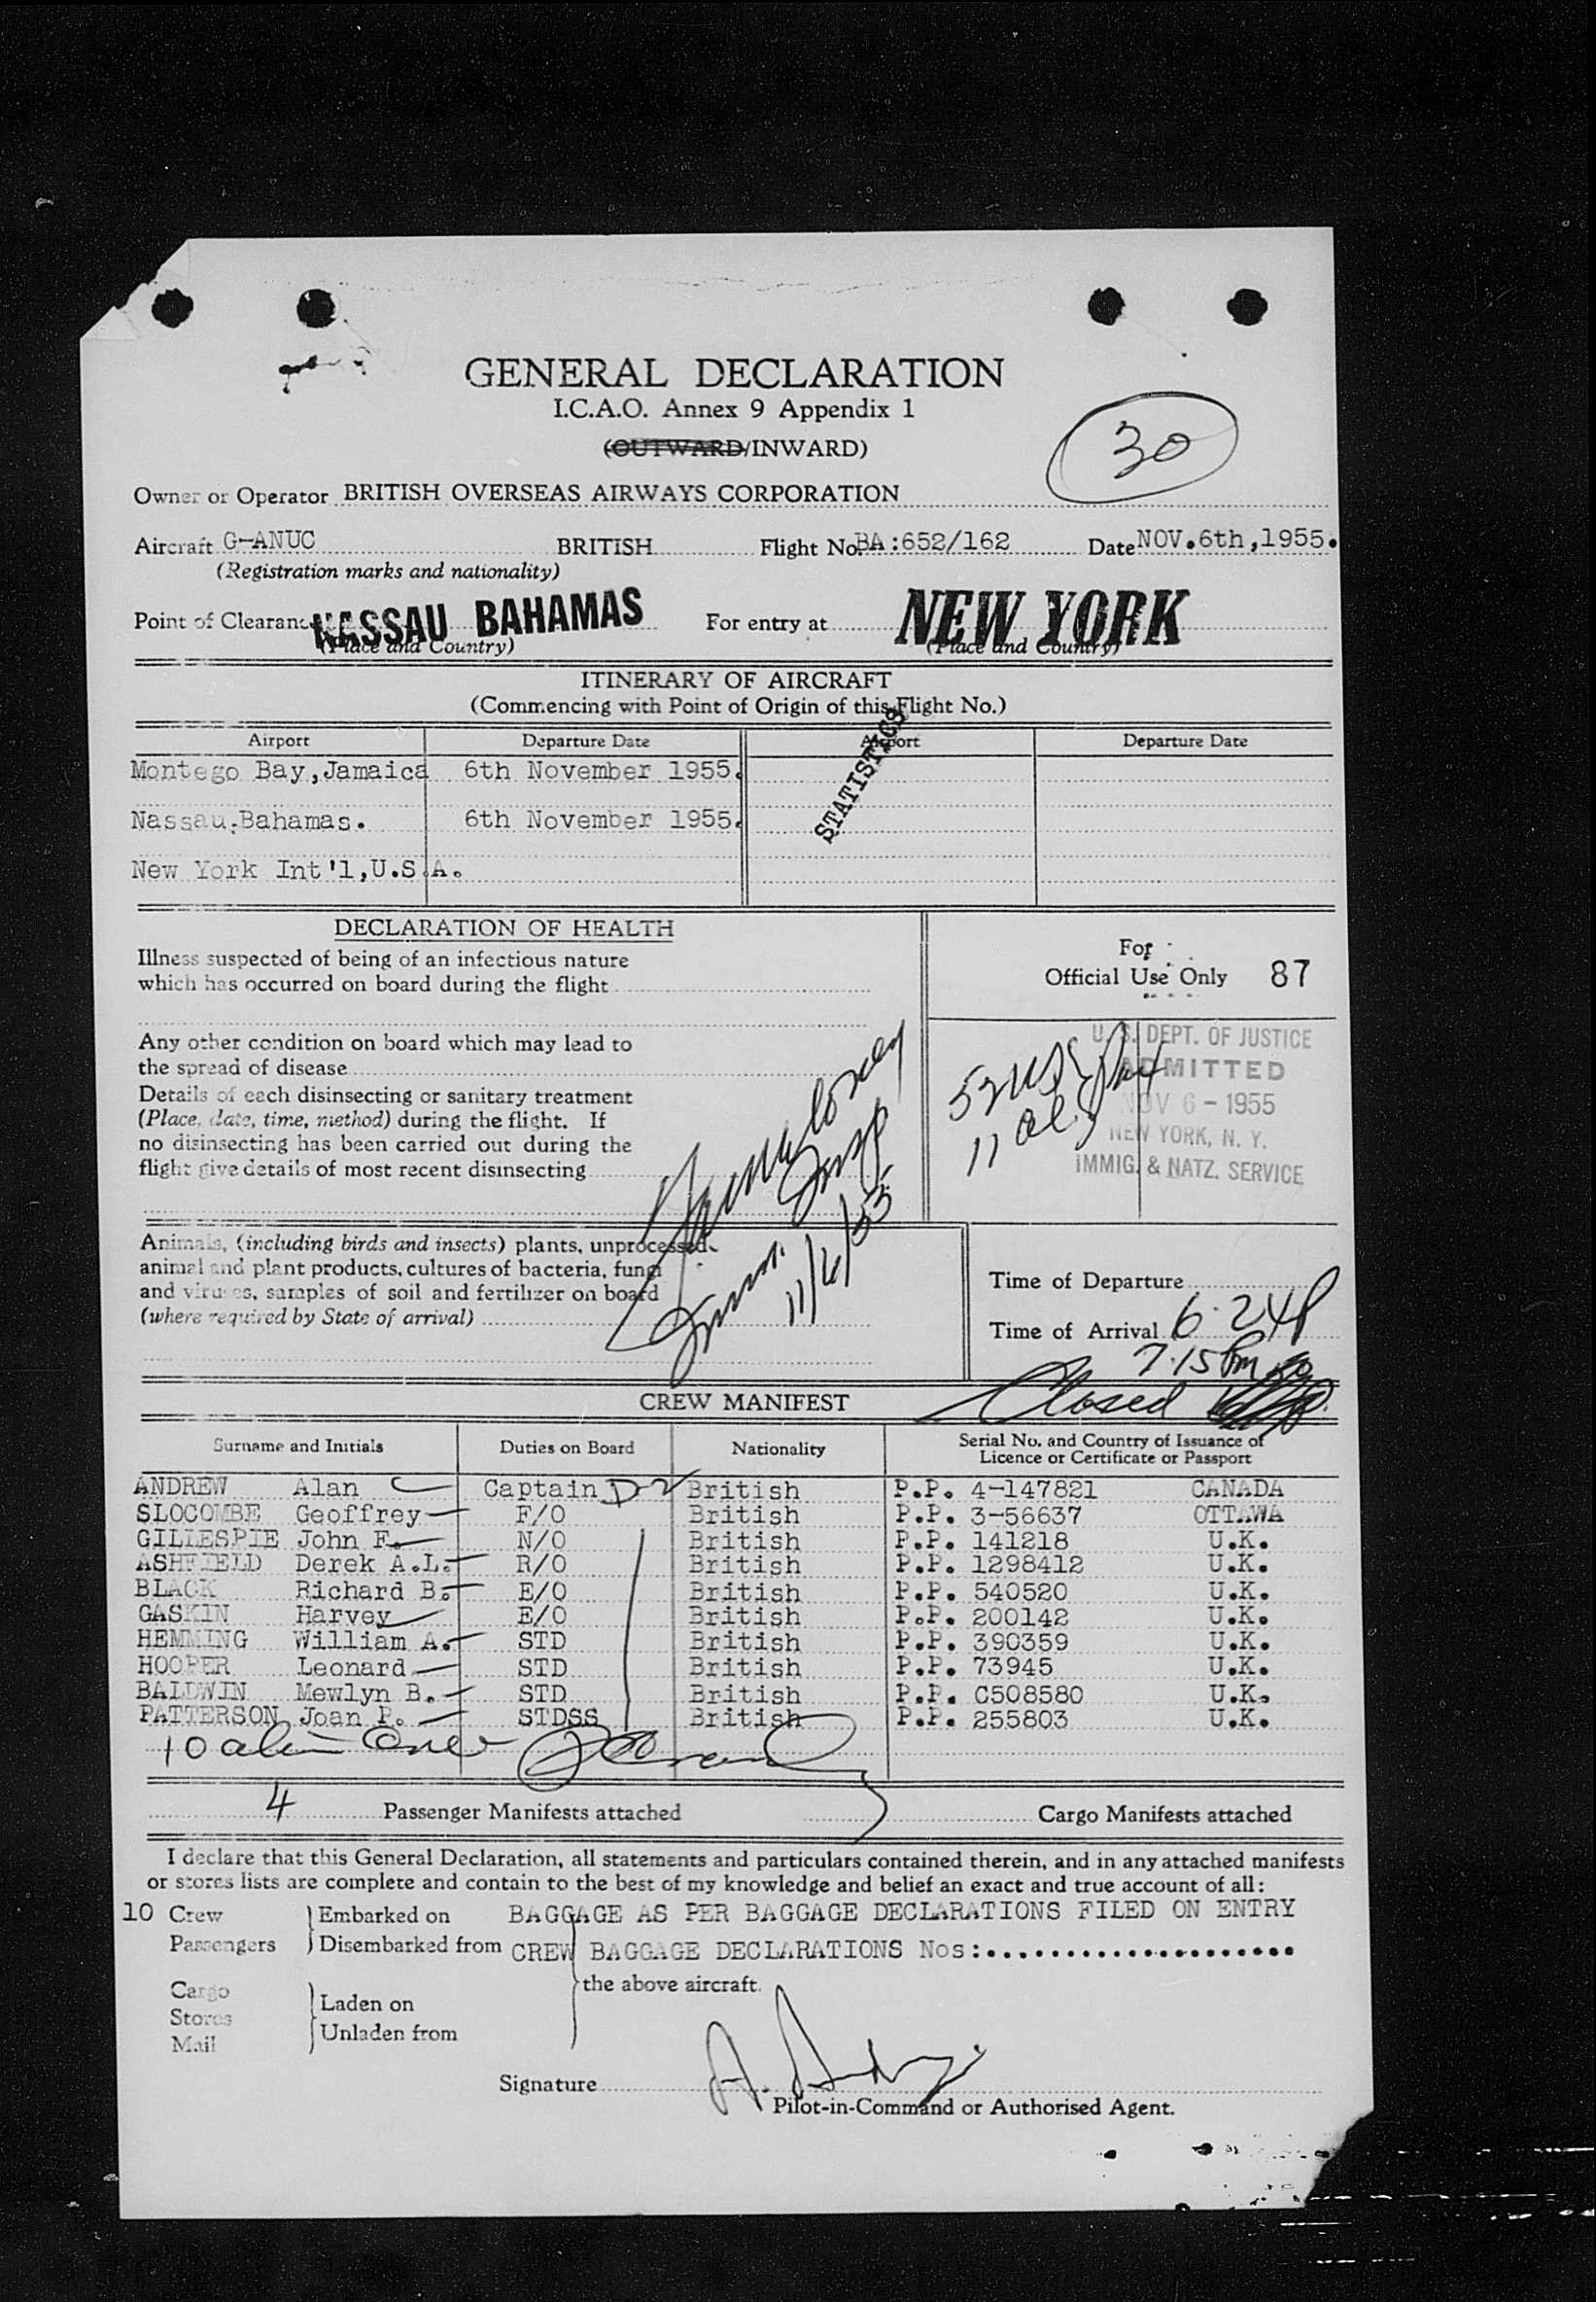 GENERAL DECLARATION
I.C.A.O. Annex 9 Appendix 1
(OUTWARD/INWARD)
30
Owner or Operator BRITISH OVERSEAS AIRWAYS CORPORATION
Aircraft G-ANUC BRITISH Flight No. BA:652/162 Date NOV.6th,1955.
(Registration marks and nationality)
Point of Clearance NASSAU BAHAMAS For entry at NEW YORK
(Place and Country) (Place and Country)
ITINERARY OF AIRCRAFT
(Commencing with Point of Origin of this Flight No.)
Airport Departure Date Airport Departure Date
STATISTICS
Montego Bay,Jamaica 6th November 1955.
Nassau,Bahamas. 6th November 1955.
New York Int'l,U.S.A.
DECLARATION OF HEALTH
Illness suspected of being of an infectious nature
which has occurred on board during the flight
Any other condition on board which may lead to
the spread of disease
Details of each disinsecting or sanitary treatment
(Place, date, time, method) during the flight. If
no disinsecting has been carried out during the
flight give details of most recent disinsecting
For
Official Use Only 87
U. S. DEPT. OF JUSTICE
ADMITTED
NOV 6 - 1955
NEW YORK, N. Y.
IMMIG. & NATZ. SERVICE
52 USC
11 al.
Insp
Imm. 11/6/55
Animals, (including birds and insects) plants, unprocessed
animal and plant products, cultures of bacteria, fungi
and viruses, samples of soil and fertilizer on board
(where required by State of arrival)
Time of Departure
Time of Arrival 6.24P
7.15 Pm
Closed
CREW MANIFEST
Surname and Initials Duties on Board Nationality Serial No. and Country of Issuance of
Licence or Certificate or Passport
ANDREW Alan Captain D-2 British P.P. 4-147821 CANADA
SLOCOMBE Geoffrey F/O British P.P. 3-56637 OTTAWA
GILLESPIE John F. N/O British P.P. 141218 U.K.
ASHFIELD Derek A.L. R/O British P.P. 1298412 U.K.
BLACK Richard B. E/O British P.P. 540520 U.K.
GASKIN Harvey E/O British P.P. 200142 U.K.
HEMMING William A. STD British P.P. 390359 U.K.
HOOPER Leonard STD British P.P. 73945 U.K.
BALDWIN Mewlyn B. STD British P.P. C508580 U.K.
PATTERSON Joan P. STDSS British P.P. 255803 U.K.
10 alien Crew
4 Passenger Manifests attached Cargo Manifests attached
I declare that this General Declaration, all statements and particulars contained therein, and in any attached manifests
or stores lists are complete and contain to the best of my knowledge and belief an exact and true account of all:
10 Crew Embarked on BAGGAGE AS PER BAGGAGE DECLARATIONS FILED ON ENTRY
Passengers Disembarked from CREW BAGGAGE DECLARATIONS Nos:.....................
the above aircraft.
Cargo
Stores Laden on
Mail Unladen from
Signature A. Andrew
Pilot-in-Command or Authorised Agent.